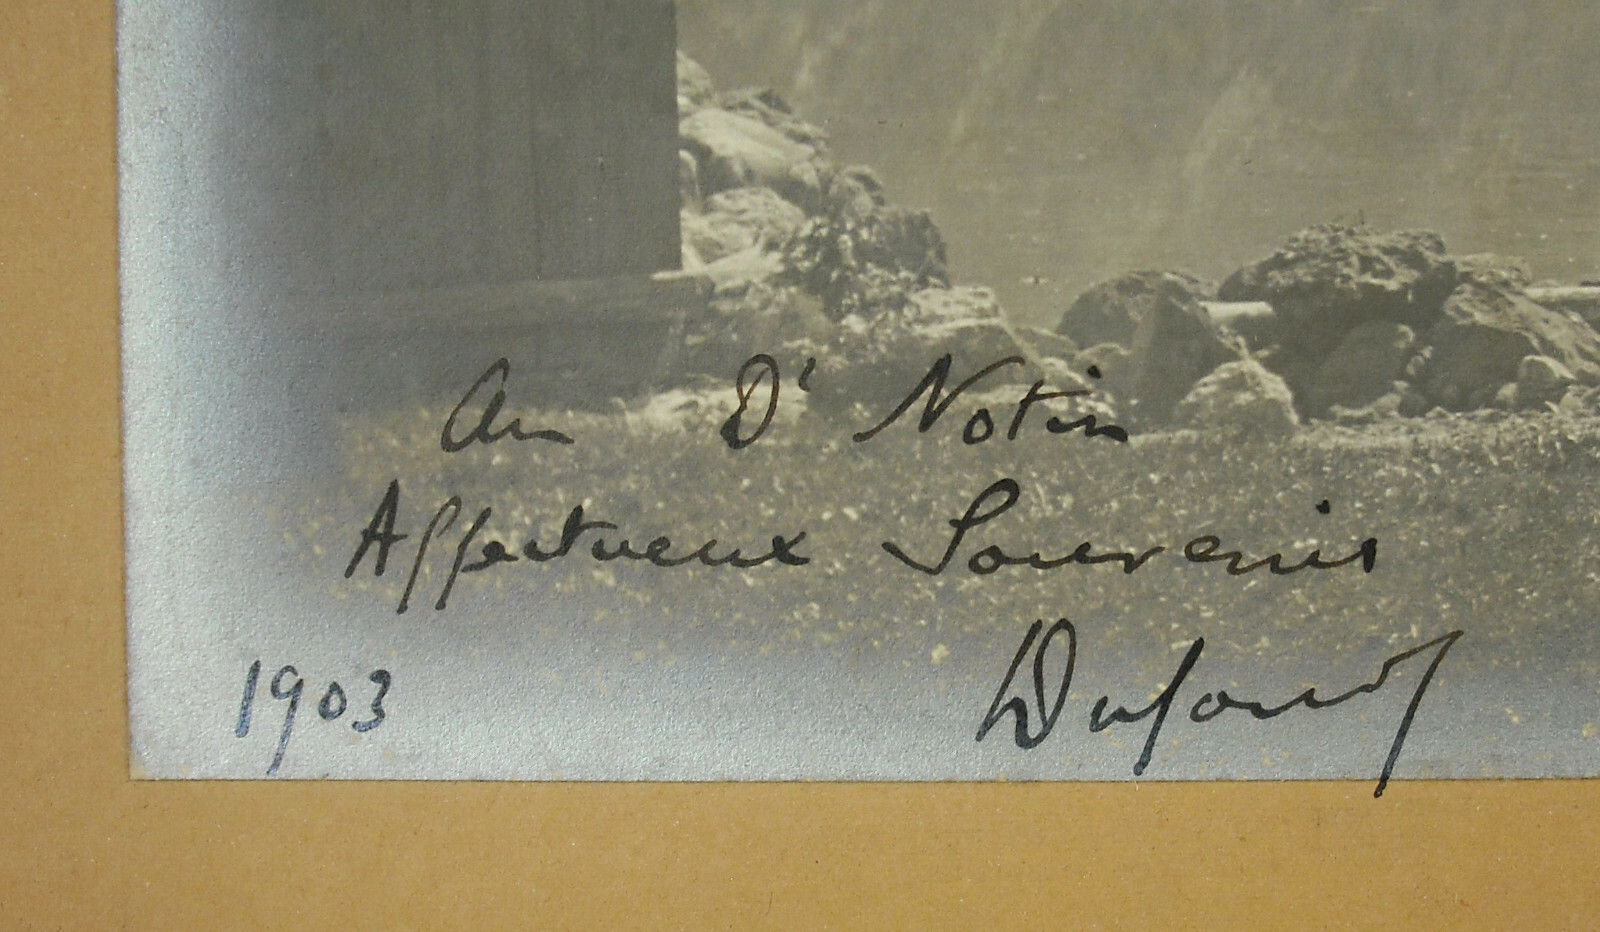 Au Dr Notin
Affectueux Souvenir
1903
Dufour